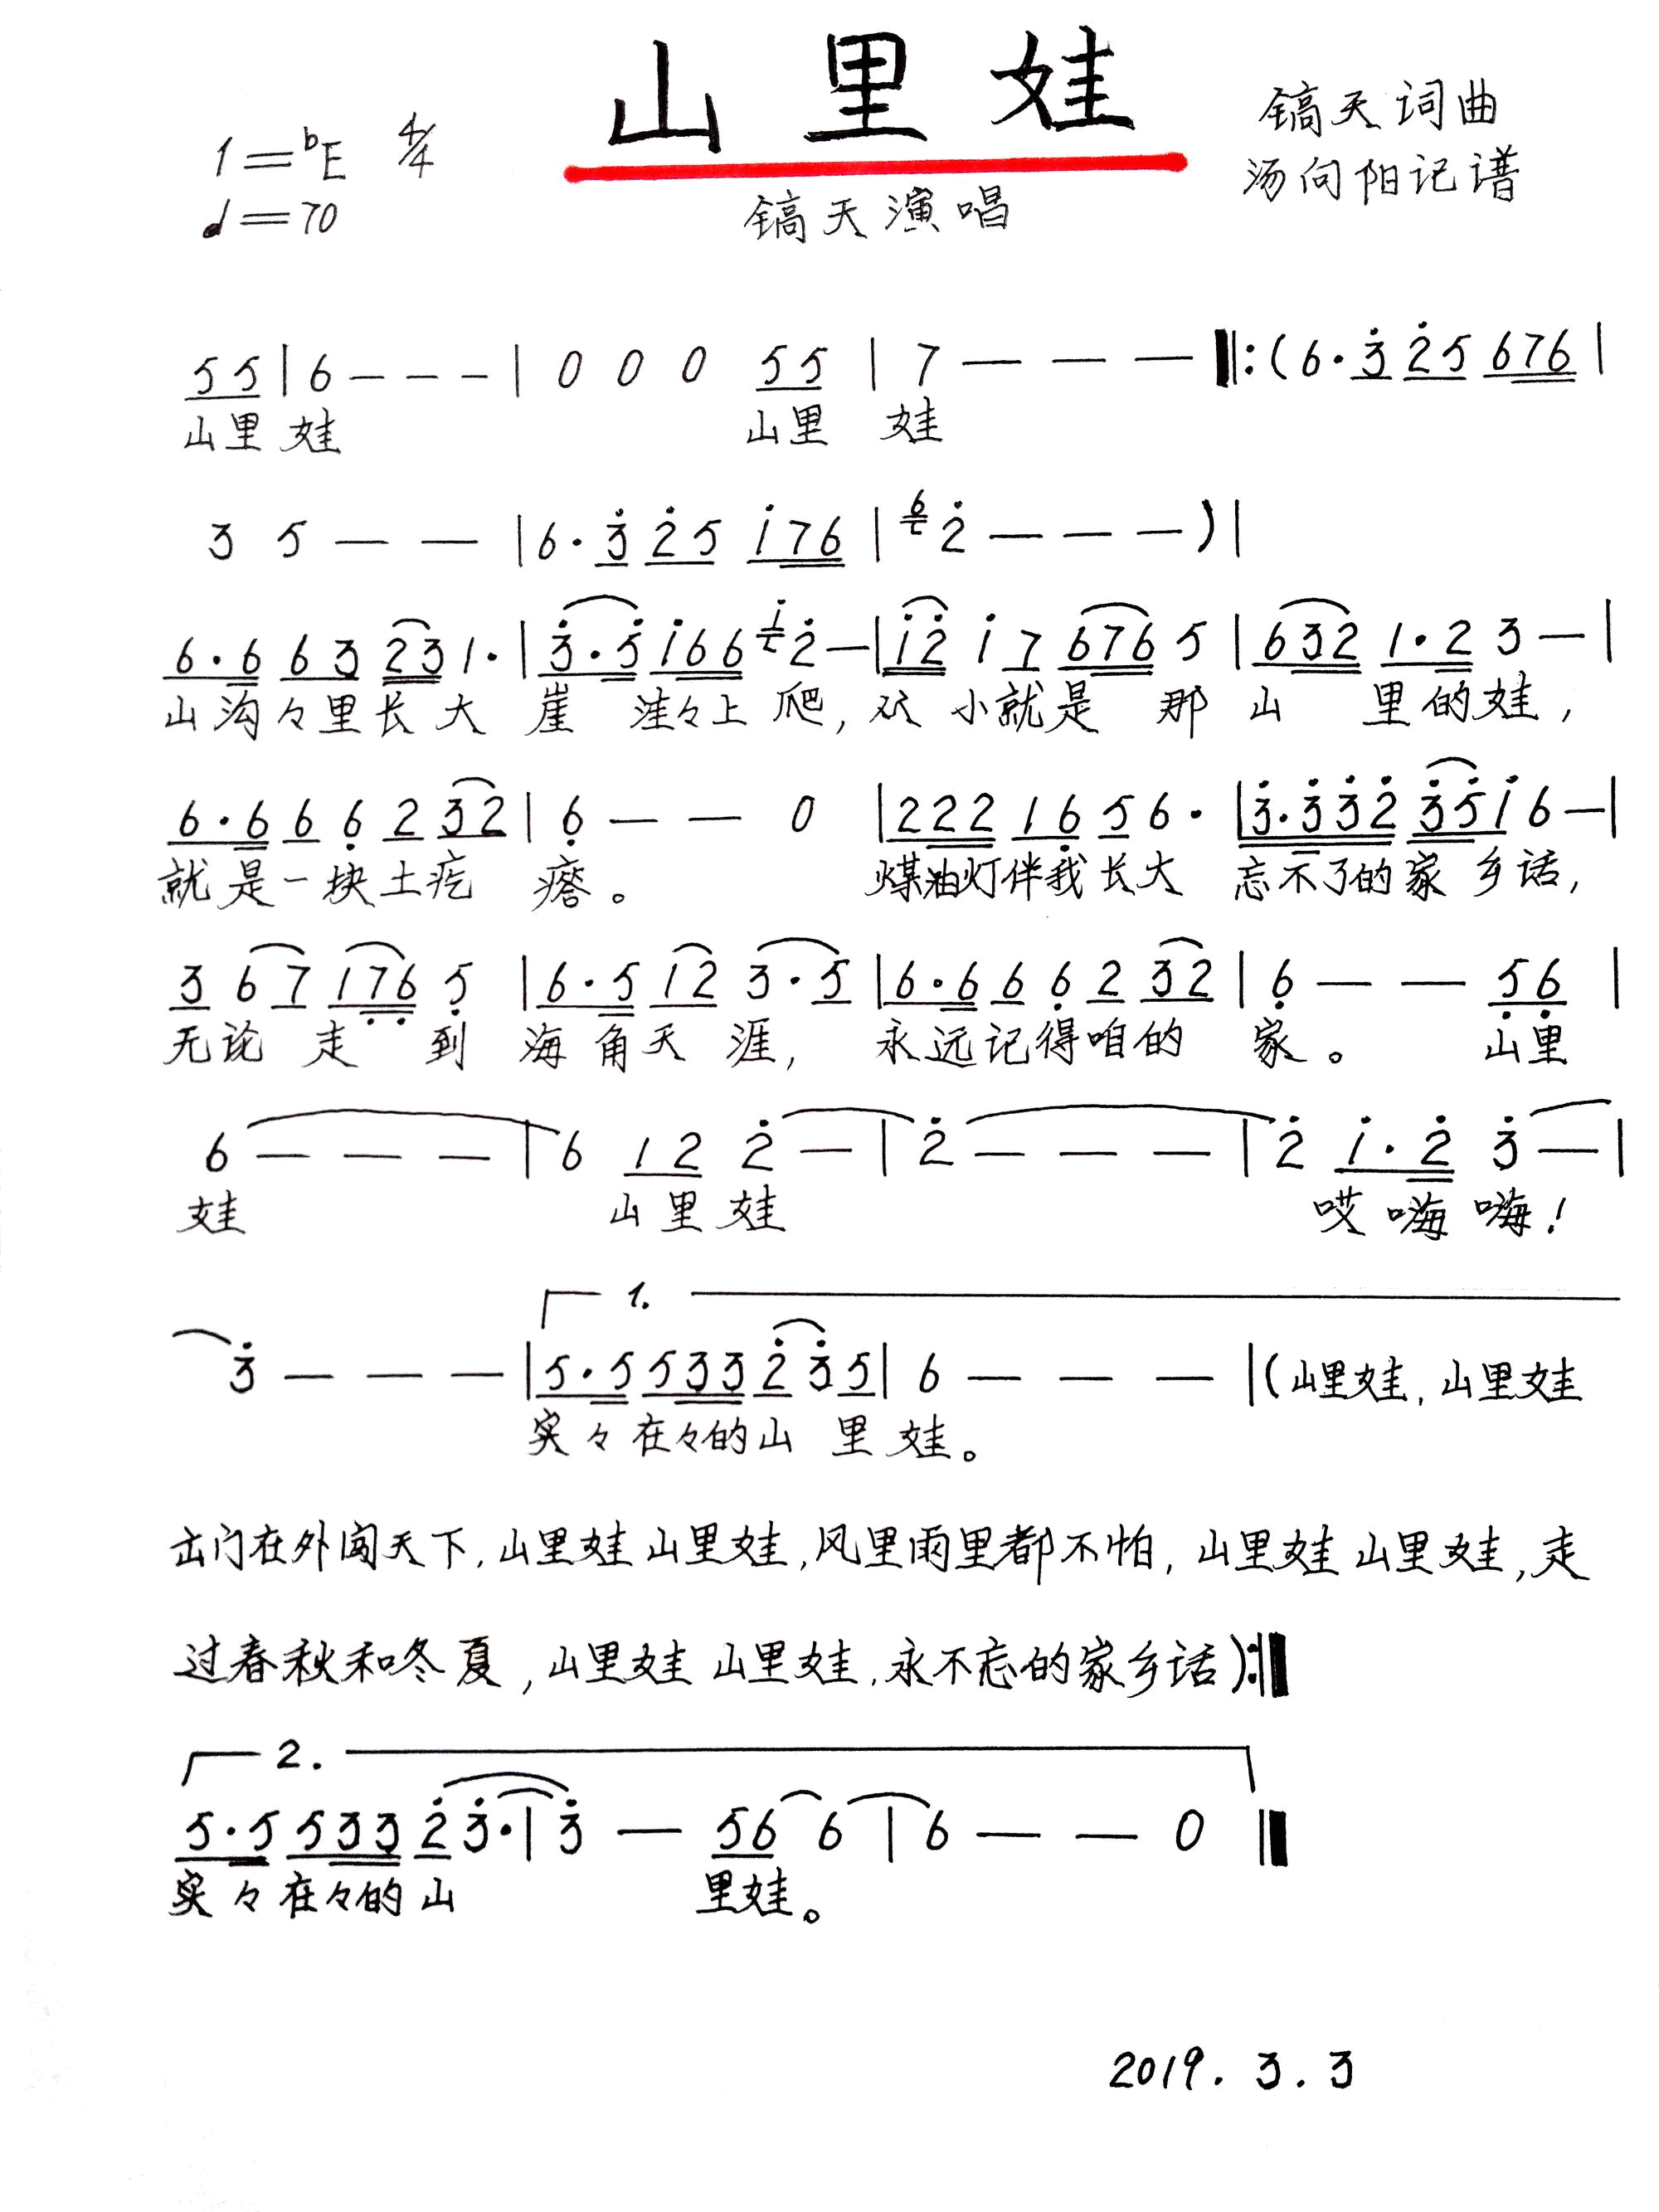 山里娃
镐天词曲
1=♭E 4/4
汤向阳记谱
♩=70
镐天演唱
5 5 | 6 - - - | 0 0 0 5 5 | 7 — — — ‖:( 6· 3̇ 2̇ 5 6 7 6 |
山里娃 山里 娃
3 5 — — | 6· 3̇ 2̇ 5 i̇ 7 6 | 6 2̇ — — — ) |
6·6 6 3 2 3 1· | 3̇·5̇ i̇ 6 6 i̇ 2̇ — | i̇ 2̇ i̇ 7 6 7 6 5 | 6 3 2 1·2 3 — |
山沟々里长大 崖洼々上爬,从小就是那山里的娃,
6·6 6 6̣ 2 3 2 | 6̣ — — 0 | 2 2 2 1 6̣ 5 6· | 3̇·3̇ 3̇ 2̇ 3̇ 5̇ i̇ 6 — |
就是一块土疙瘩。 煤油灯伴我长大 忘不了的家乡话,
3 6 7 1 7̣ 6̣ 5̣ | 6·5 1 2 3·5 | 6·6 6 6̣ 2 3 2 | 6̣ — — 5̣ 6̣ |
无论走到海角天涯, 永远记得咱的家。 山里
6 — — — | 6 1 2 2̇ — | 2̇ — — — | 2̇ i̇·2̇ 3̇ — |
娃 山里娃 哎嗨嗨!
1.
3̇ — — — | 5·5 5 3 3 2̇ 3̇ 5 | 6 — — — |(山里娃,山里娃
实々在々的山里娃。
出门在外闯天下,山里娃山里娃,风里雨里都不怕,山里娃山里娃,走
过春秋和冬夏,山里娃山里娃,永不忘的家乡话):‖
2.
5·5 5 3 3 2̇ 3̇·| 3̇ — 5 6 6 | 6 — — 0 ‖
实々在々的山 里娃。
2019.3.3